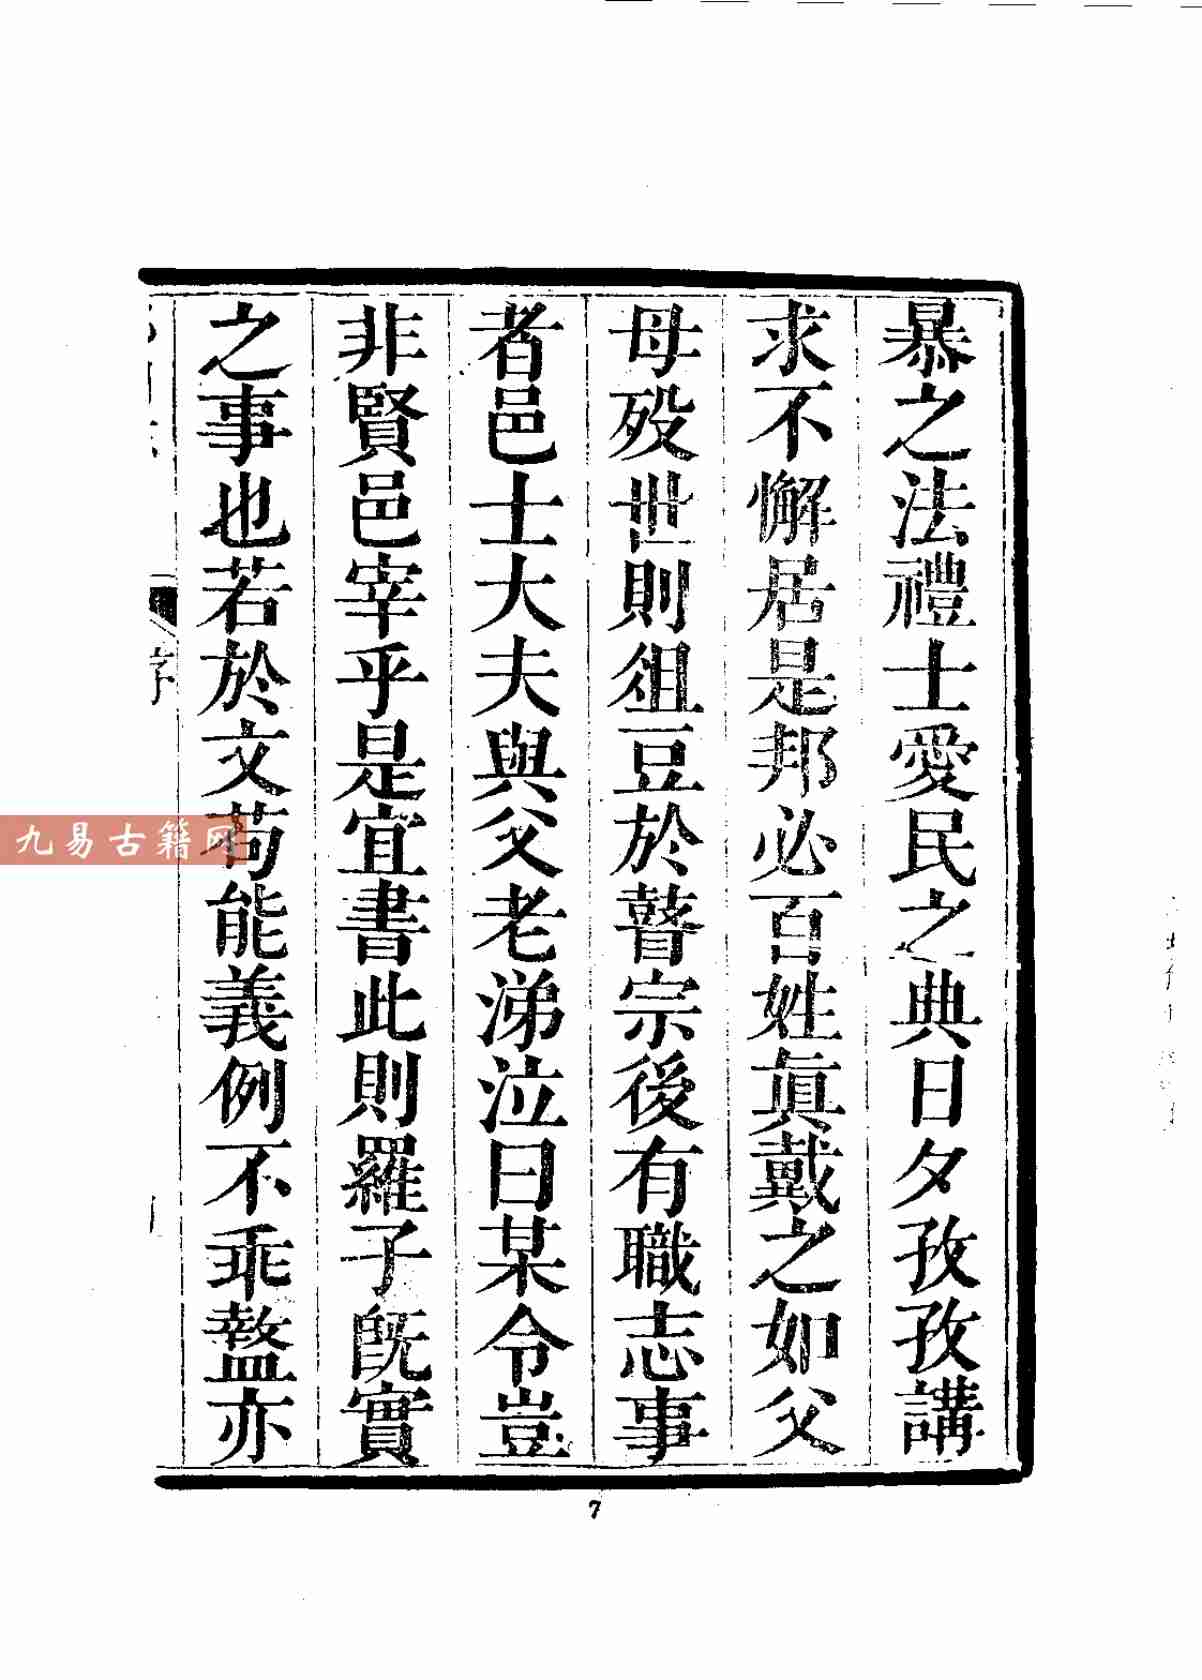 暴之法禮士愛民之典日夕孜孜講
求不懈居是邦必百姓眞戴之如父
母歿世則俎豆於瞽宗後有職志事
者邑士大夫與父老涕泣曰某令豈
非賢邑宰乎是宜書此則羅子旣實
之事也若於文苟能義例不乖盭亦
序
九易古籍网
7